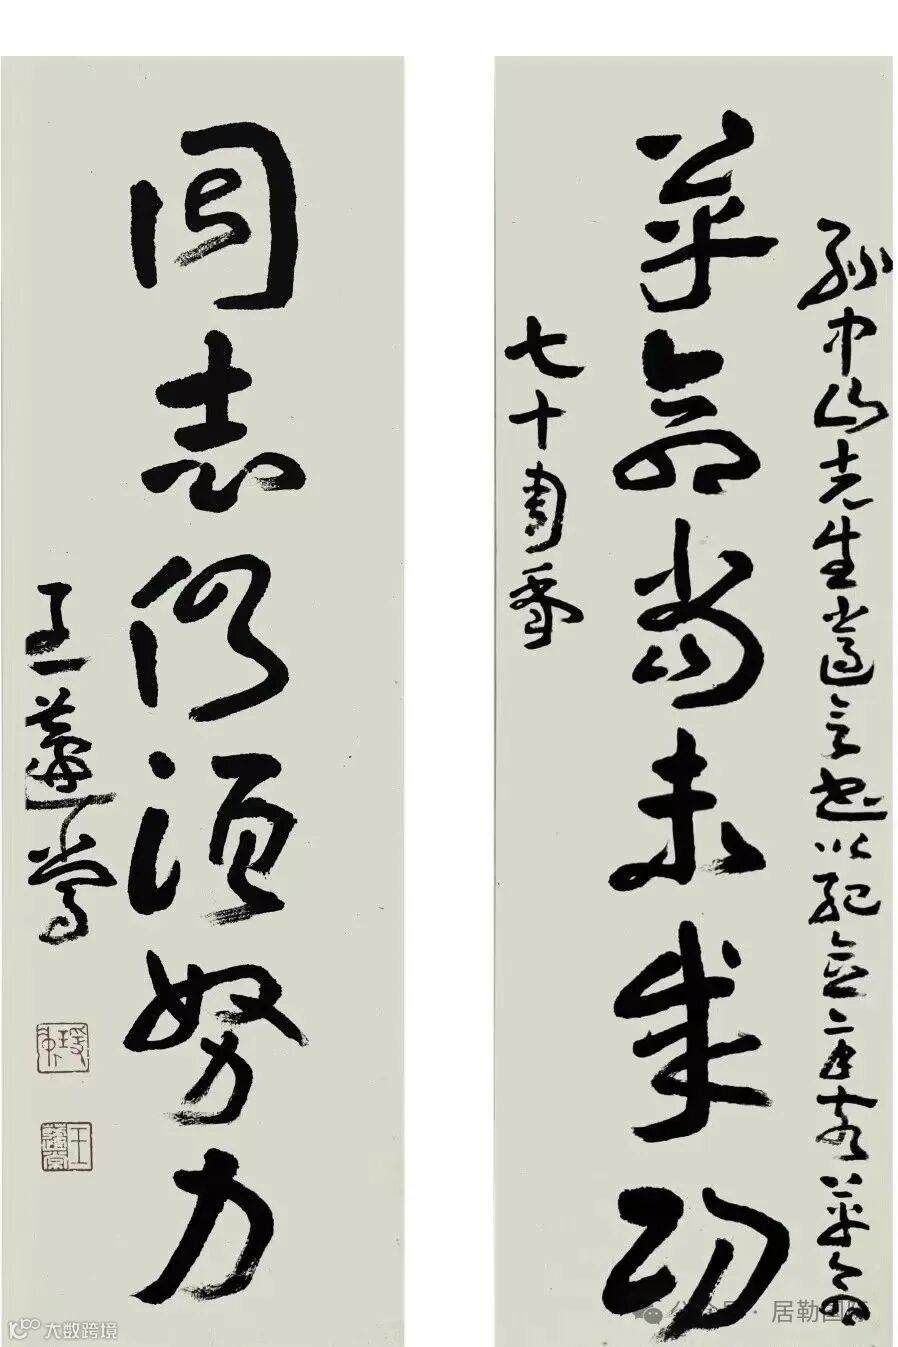 孫中山先生遺言書以紀念辛亥革命
革命尚未成功
七十周年
同志仍須努力
王蘧常
王蘧常
公众号 · 居勒国
大数跨境